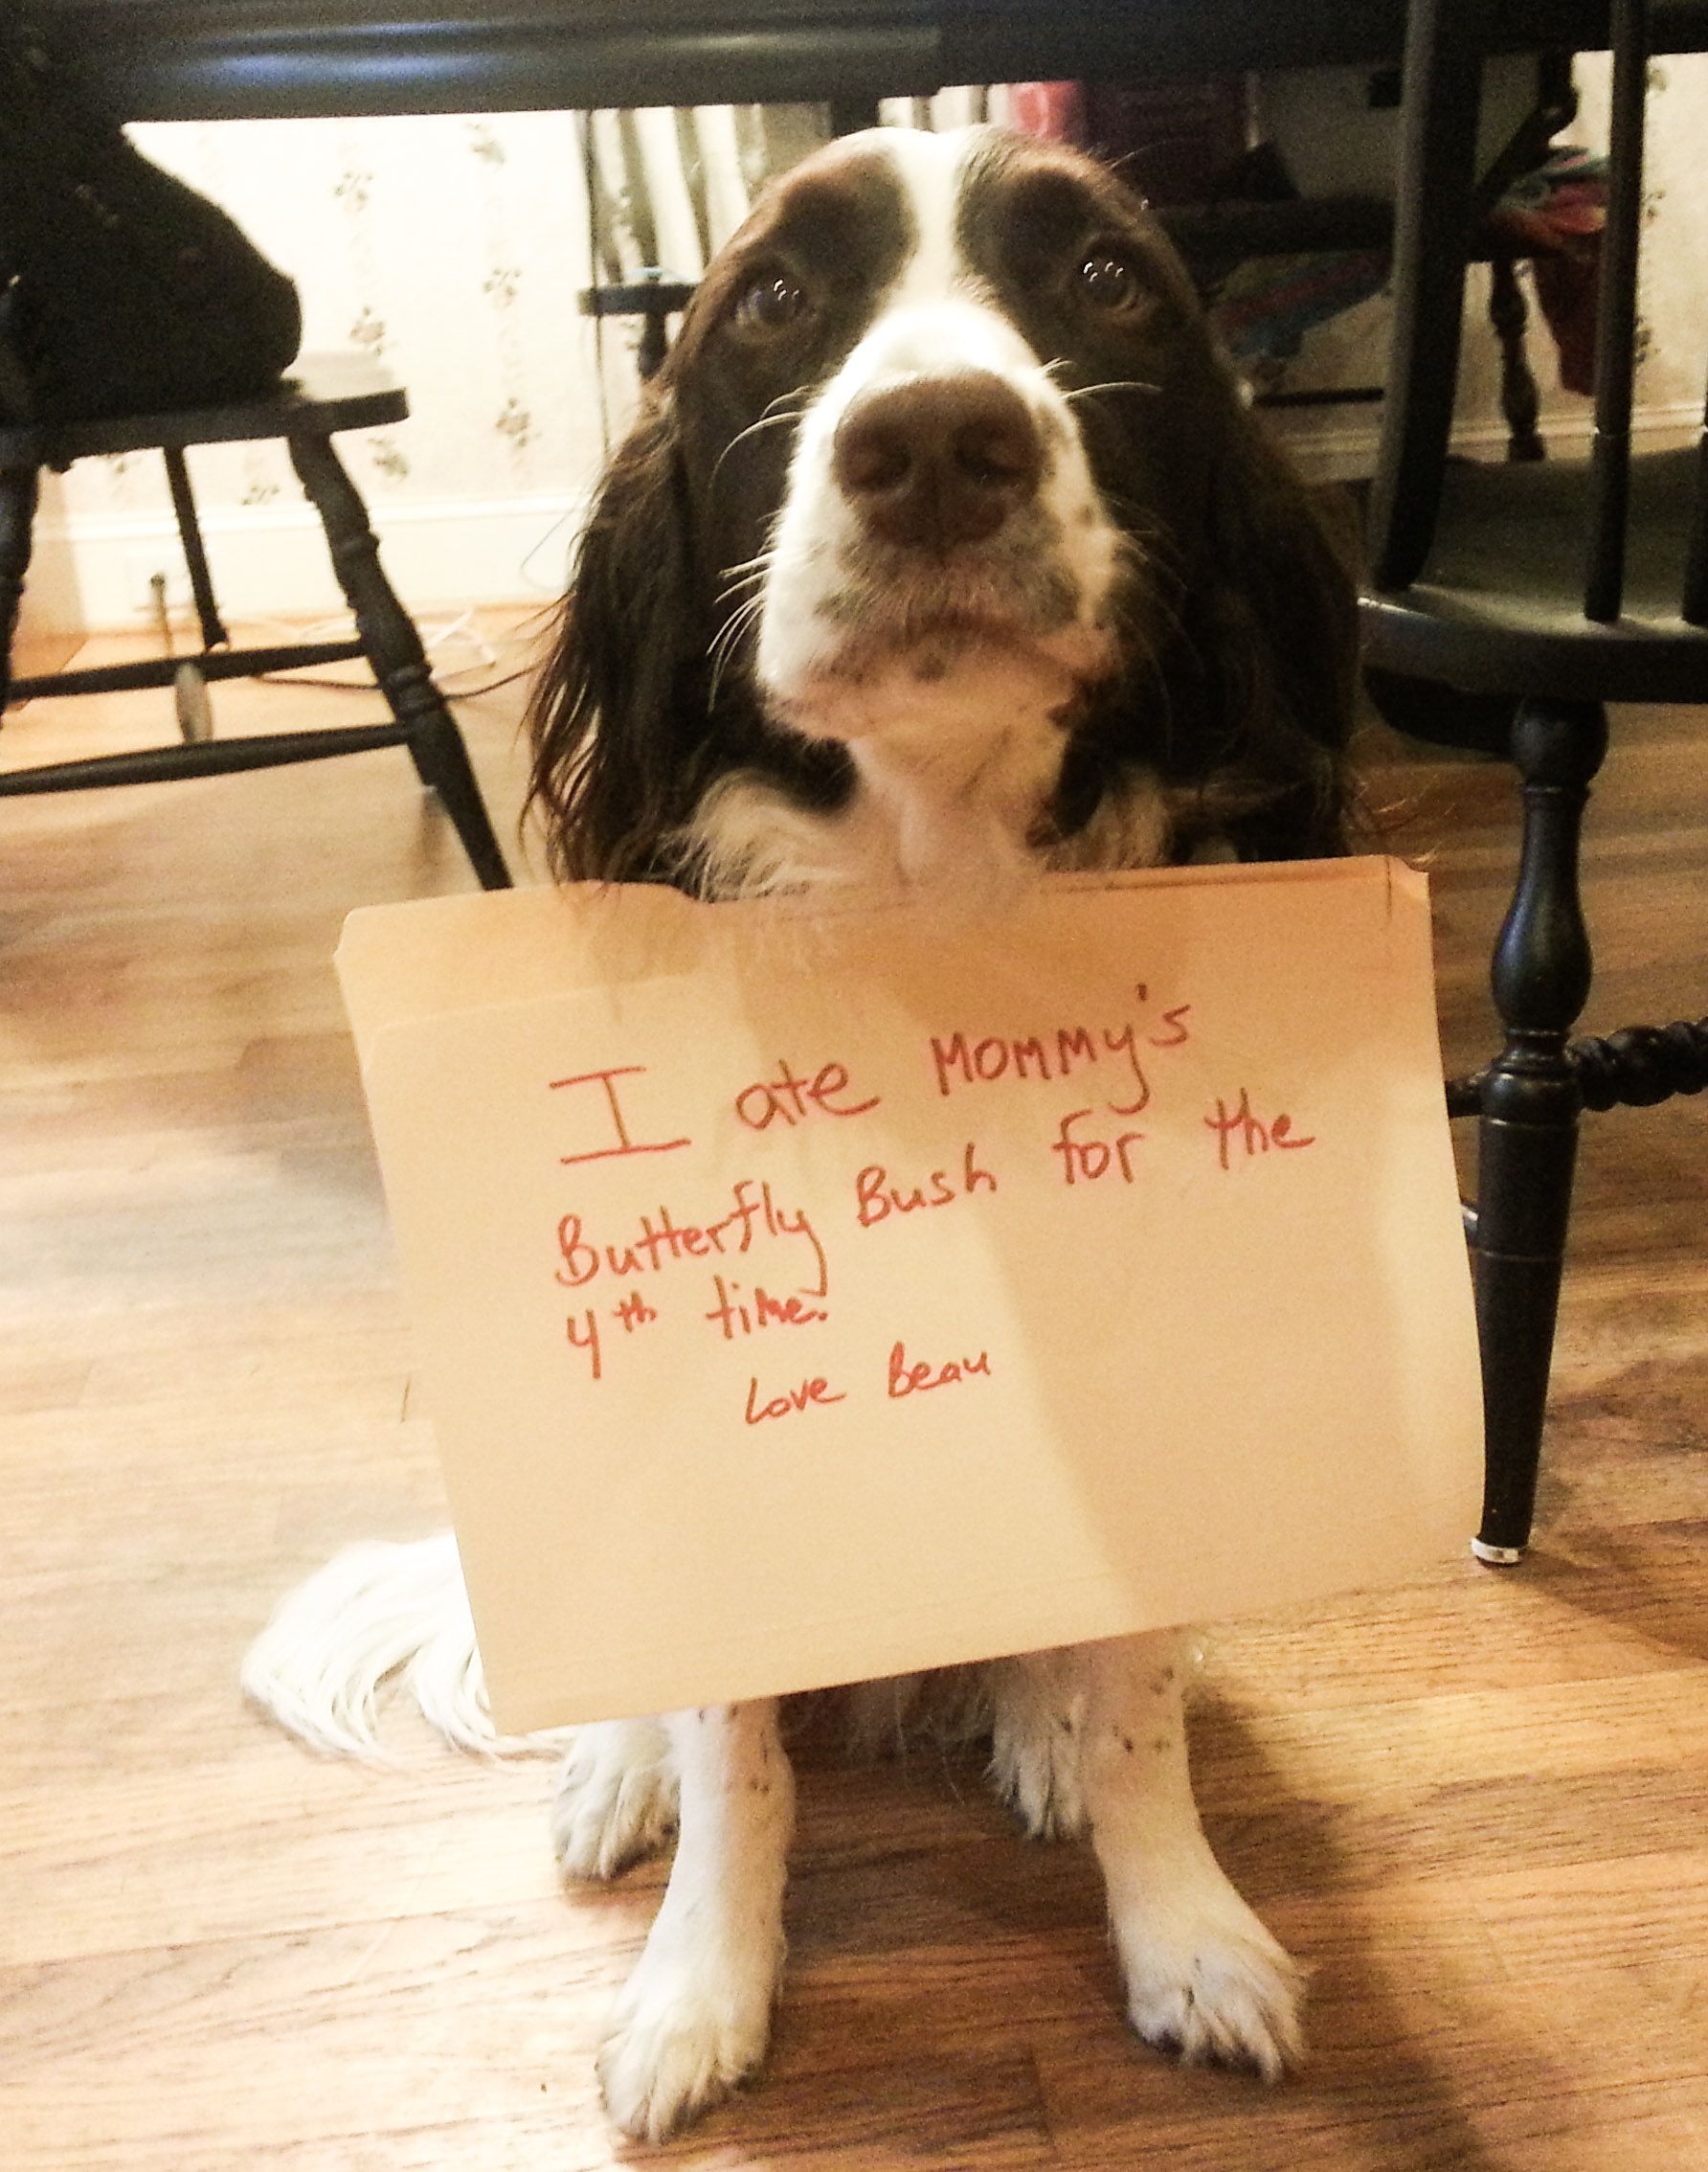 I ate Mommy's
Butterfly Bush for the
4th time.
Love Beau